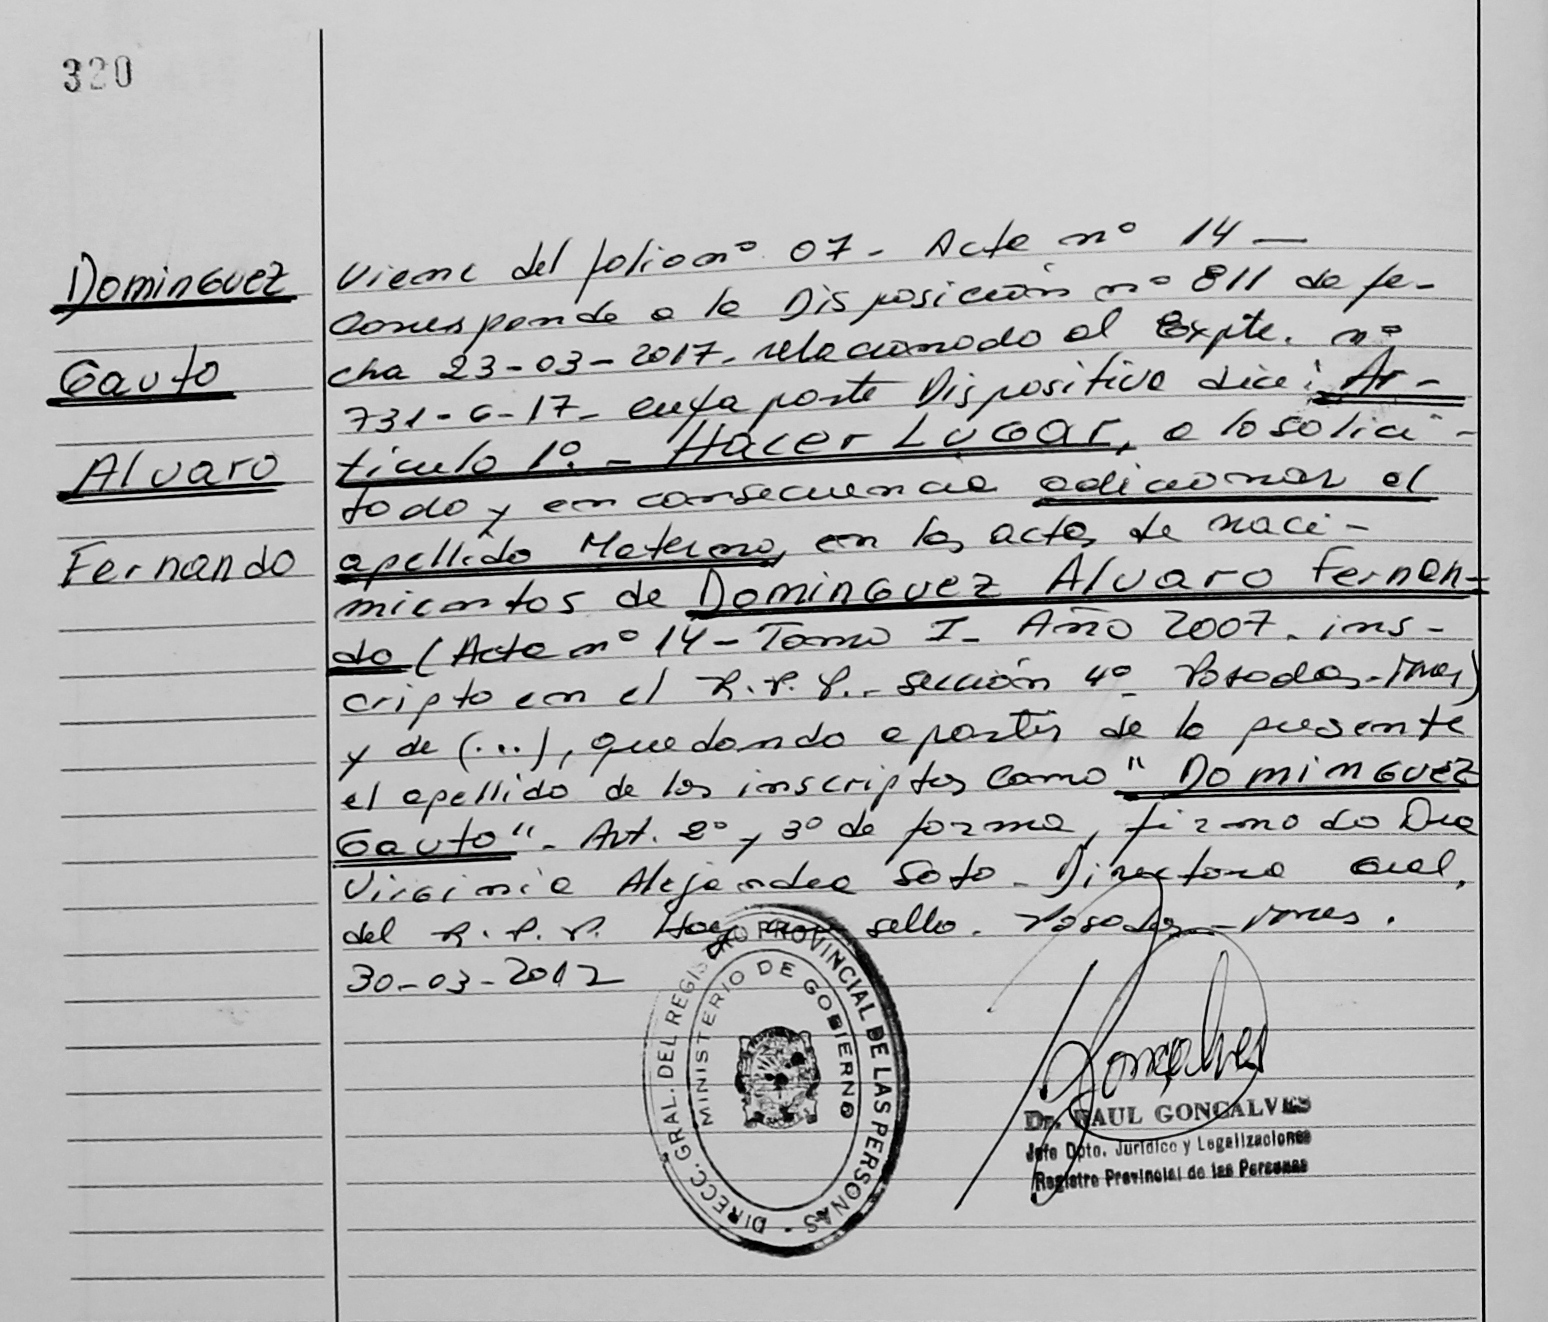 320
Dominguez
Gauto
Alvaro
Fernando
Viene del folio nº 07 - Acta nº 14 —
Corresponde a la Disposición nº 811 de fe-
cha 23-03-2017 - relacionado al Expte. nº
731-G-17 - cuya parte Dispositiva dice: Ar-
tículo 1º - Hacer Lugar, a lo solici-
tado y en consecuencia adicionar el
apellido Materno, en las actas de naci-
mientos de Dominguez Alvaro Fernan-
do (Acta nº 14 - Tomo I - Año 2007 - ins-
cripto en el R.P.P. - sección 4º Posadas - Mnes)
y de (...), quedando a partir de la presente
el apellido de los inscriptos como "Dominguez
Gauto" - Art. 2º y 3º de forma, firmado Dra
Virginia Alejandra Soto - Directora Gral.
del R.P.P. Hay sello. Posadas - Mnes.
30-03-2017
DIRECC. GRAL. DEL REGISTRO PROVINCIAL DE LAS PERSONAS -
MINISTERIO DE GOBIERNO
Goncalves
Dr. RAUL GONCALVES
Jefe Dpto. Jurídico y Legalizaciones
Registro Provincial de las Personas